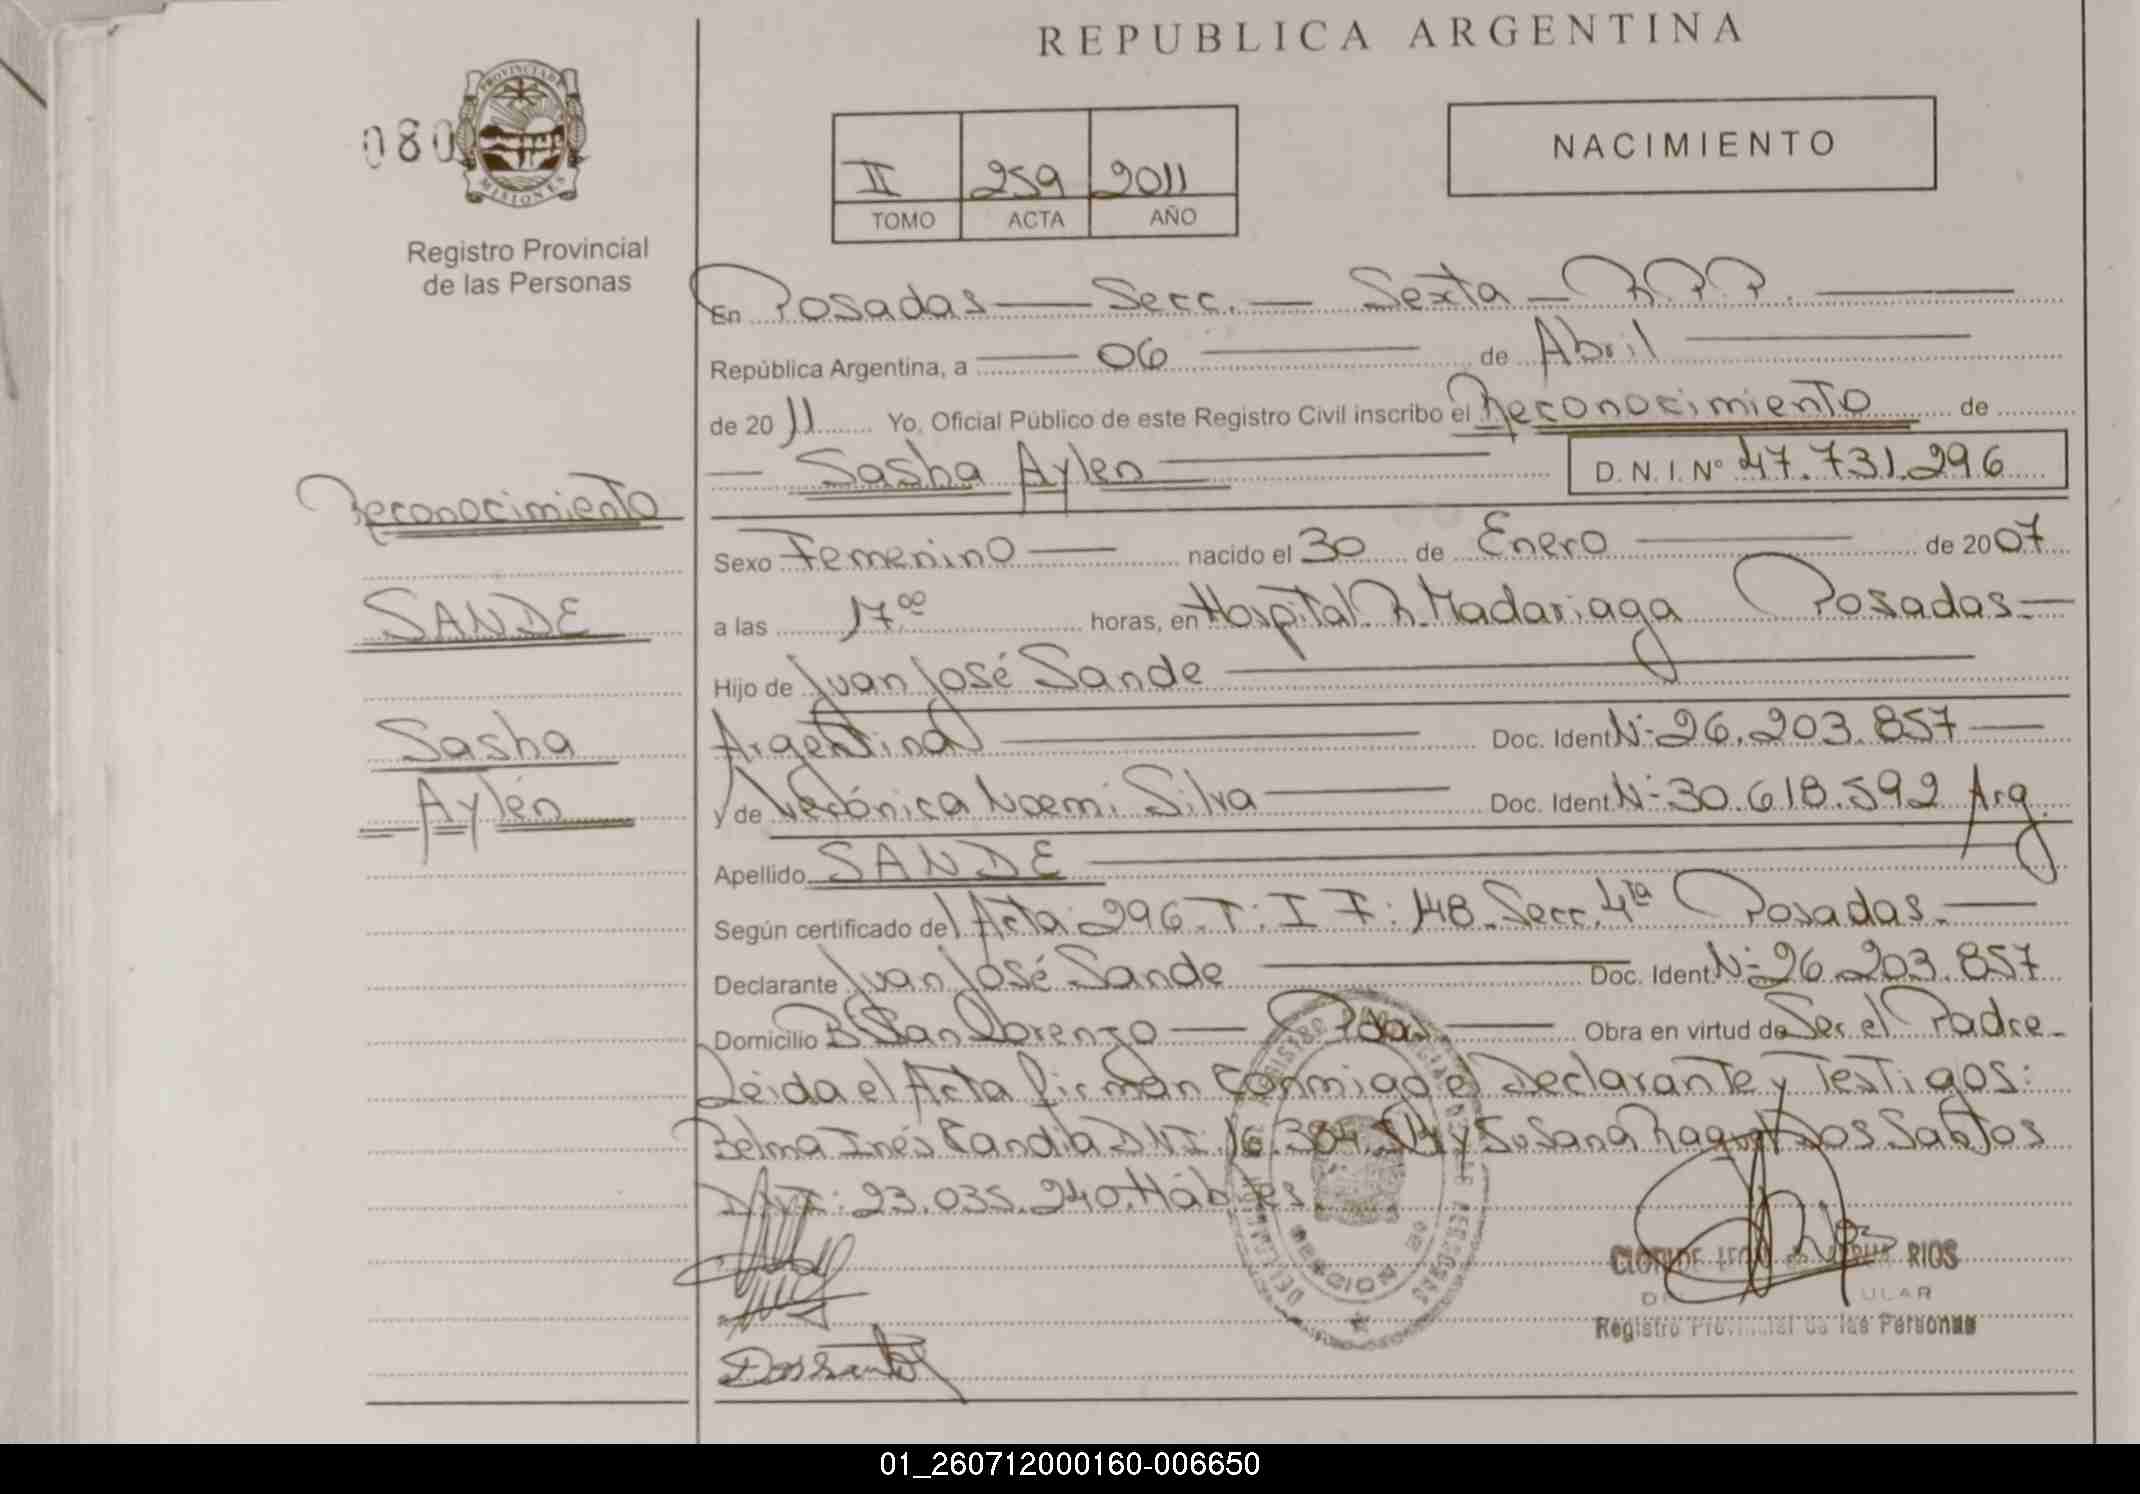 REPUBLICA ARGENTINA
080
PROVINCIA DE MISIONES
Registro Provincial
de las Personas
II 259 2011
TOMO ACTA AÑO
NACIMIENTO
En Posadas — Secc. — Sexta — R.P.P. —
República Argentina, a — 06 — de Abril —
de 2011 Yo, Oficial Público de este Registro Civil inscribo el Reconocimiento de
— Sasha Aylen — D. N. I. Nº 47.731.296
Sexo Femenino — nacido el 30 de Enero — de 2007
a las 17.00 horas, en Hospital R. Madariaga Posadas —
Hijo de Juan José Sande —
Argentina — Doc. Ident. Nº 26.203.857 —
y de Verónica Noemi Silva — Doc. Ident. Nº 30.618.592 Arg.
Apellido SANDE —
Según certificado del Acta: 296. T: I F: 148. Secc. 4ta Posadas. —
Declarante Juan José Sande — Doc. Ident. Nº 26.203.857
Domicilio Bº San Lorenzo — Pdas — Obra en virtud de Ser el Padre —
Leida el Acta firman conmigo el Declarante y Testigos:
Belma Inés Candia DNI: 16.384. y Susana Raquel Dos Santos
DNI: 23.035.240. Hábiles
Reconocimiento
SANDE
Sasha
Aylén
Dos Santos
RIOS
Registro Provincial de las Personas
01_260712000160-006650